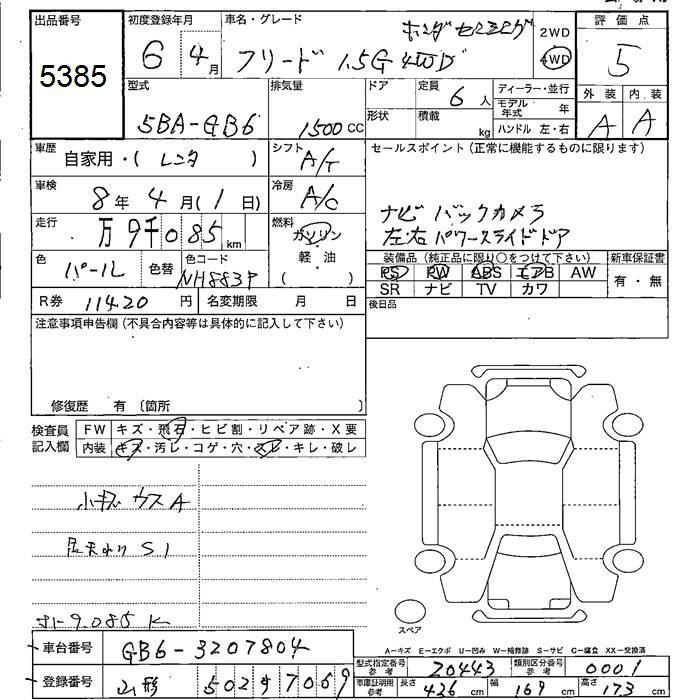 出品番号
5385
初度登録年月
6 4月
車名・グレード
ホンダセンシング
フリード 1.5G 4WD
2WD
4WD
評価点
5
外装 内装
A A
型式
5BA-GB6
排気量
1500CC
ドア
形状
定員
6人
積載
kg
ディーラー・並行
モデル年式 年
ハンドル 左・右
車歴
自家用・(レンタ )
シフト
A/T
セールスポイント(正常に機能するものに限ります)
ナビ バックカメラ
左・右パワースライドドア
車検
8年4月(1日)
冷房
A/C
走行
万9千085km
燃料
ガソリン
軽・油
( )
色
パール
色替
色コード
NH883P
装備品(純正品に限り○をつけて下さい)
PS PW ABS エアB AW
SR ナビ TV カワ
新車保証書
有・無
R券 11420円
名変期限 月 日
後日品
注意事項申告欄(不具合内容等は具体的に記入して下さい)
修復歴 有〔箇所 〕
検査員記入欄
FW キズ・飛石・ヒビ割・リペア跡・X要
内装 キズ・汚レ・コゲ・穴・スレ・キレ・破レ
小キズ ウスA
S1
オドー9.085K
スペア
A－キズ E－エクボ U－凹み W－補修跡 S－サビ C－腐立 XX－交換済
車台番号
GB6-3207804
登録番号
山形 502 7069
型式指定番号参考
20443
類別区分番号参考
0001
車庫証明用参考
長さ 426cm
幅 169cm
高さ 173cm